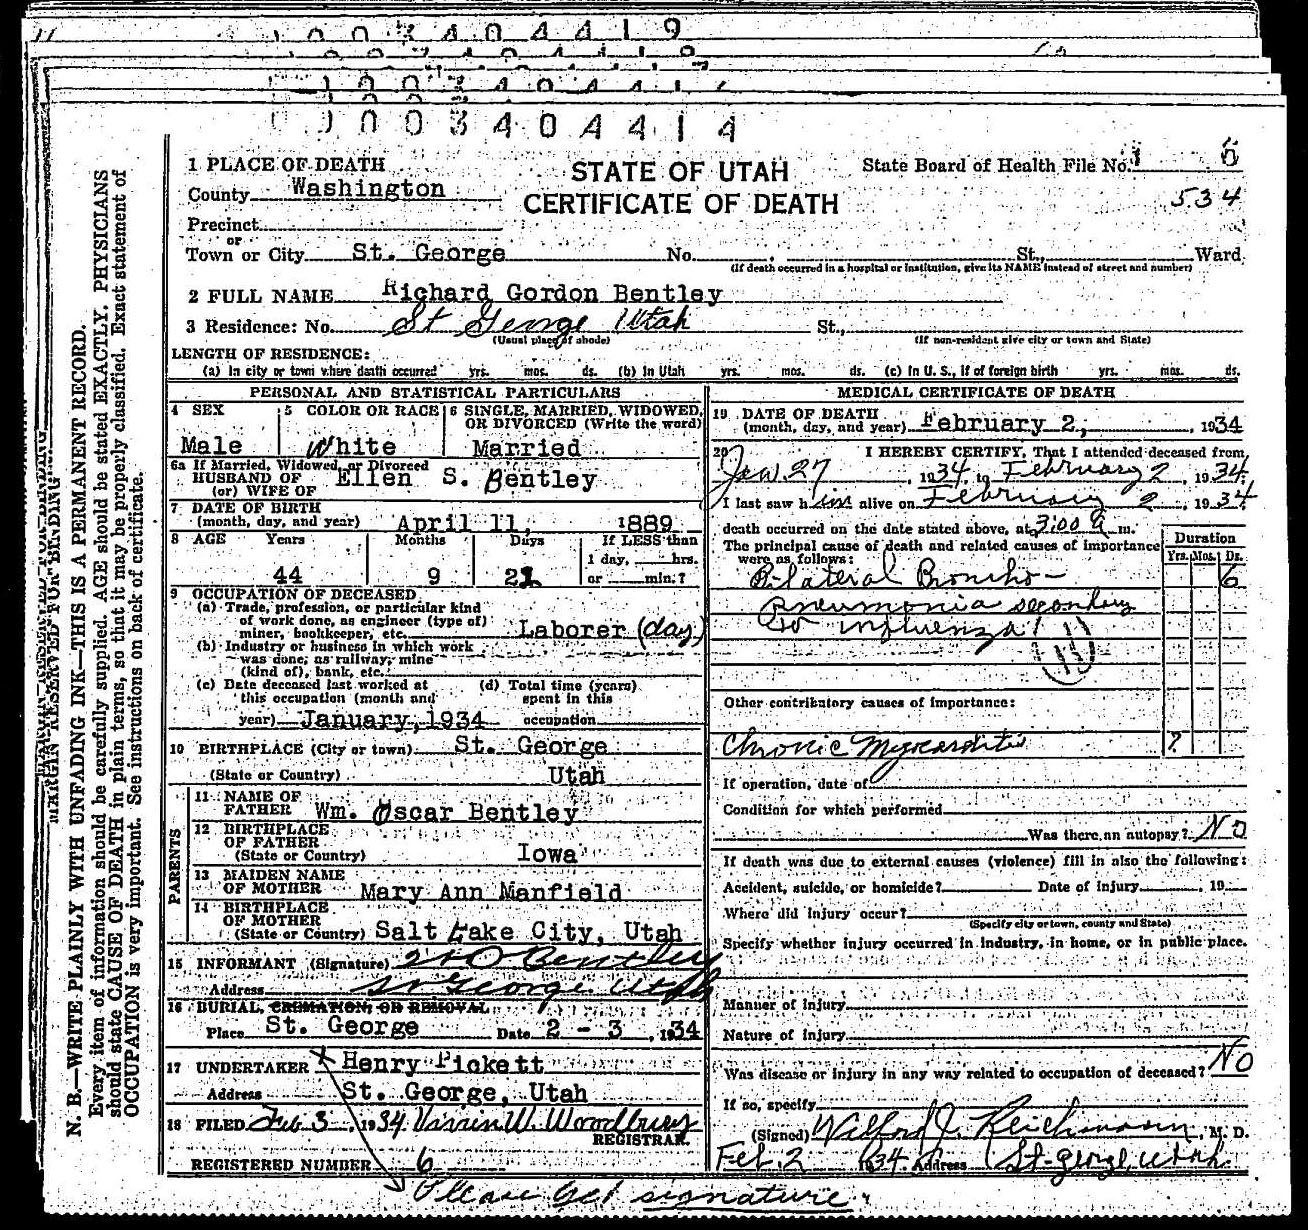 1003404419
1003404414
1 PLACE OF DEATH
STATE OF UTAH
CERTIFICATE OF DEATH
State Board of Health File No. 1 6
534
County Washington
Precinct
or
Town or City St. George No. , St., Ward.
(If death occurred in a hospital or institution, give its NAME instead of street and number)
2 FULL NAME Richard Gordon Bentley
3 Residence: No. St George Utah St.,
(Usual place of abode) (If non-resident give city or town and State)
LENGTH OF RESIDENCE:
(a) In city or town where death occurred yrs. mos. ds. (b) In Utah yrs. mos. ds. (c) In U. S., if of foreign birth yrs. mos. ds.
PERSONAL AND STATISTICAL PARTICULARS
4 SEX 5 COLOR OR RACE 6 SINGLE, MARRIED, WIDOWED, OR DIVORCED (Write the word)
Male White Married
6a If Married, Widowed, or Divorced
HUSBAND OF
(or) WIFE OF Ellen S. Bentley
7 DATE OF BIRTH
(month, day, and year) April 11, 1889
8 AGE Years Months Days If LESS than
1 day, hrs.
44 9 21 or min.?
9 OCCUPATION OF DECEASED
(a) Trade, profession, or particular kind
of work done, as engineer (type of)
miner, bookkeeper, etc. Laborer (day)
(b) Industry or business in which work
was done, as railway, mine
(kind of), bank, etc.
(c) Date deceased last worked at (d) Total time (years)
this occupation (month and spent in this
year) January, 1934 occupation
10 BIRTHPLACE (City or town) St. George
(State or Country) Utah
PARENTS
11 NAME OF
FATHER Wm. Oscar Bentley
12 BIRTHPLACE
OF FATHER
(State or Country) Iowa
13 MAIDEN NAME
OF MOTHER Mary Ann Manfield
14 BIRTHPLACE
OF MOTHER
(State or Country) Salt Lake City, Utah
15 INFORMANT (Signature) W O Bentley
Address St George Utah
16 BURIAL, CREMATION, OR REMOVAL
Place St. George Date 2 - 3, 1934
17 UNDERTAKER x Henry Pickett
Address St. George, Utah
18 FILED Feb 3, 1934 W. Woodbury
REGISTRAR.
REGISTERED NUMBER 6
Please Get signature
MEDICAL CERTIFICATE OF DEATH
19 DATE OF DEATH
(month, day, and year) February 2, , 1934
20 I HEREBY CERTIFY, That I attended deceased from
Jan. 27, 1934, to February 2, 1934.
I last saw him alive on February 2, 1934
death occurred on the date stated above, at 3:00 a m.
The principal cause of death and related causes of importance
were as follows:
Duration
Yrs. Mos. Ds.
Bi-lateral Broncho- 6
Pneumonia secondary
to influenza
11
Other contributory causes of importance:
Chronic Myocarditis ?
If operation, date of
Condition for which performed
Was there an autopsy? NO
If death was due to external causes (violence) fill in also the following:
Accident, suicide, or homicide? Date of injury , 19
Where did injury occur?
(Specify city or town, county and State)
Specify whether injury occurred in industry, in home, or in public place.
Manner of injury
Nature of injury
Was disease or injury in any way related to occupation of deceased? NO
If so, specify
(Signed) Wilford J. Reichmann, M. D.
Feb. 2 1934. Address St. George, Utah
MARGIN RESERVED FOR BINDING
N. B.—WRITE PLAINLY WITH UNFADING INK—THIS IS A PERMANENT RECORD.
Every item of information should be carefully supplied. AGE should be stated EXACTLY. PHYSICIANS
should state CAUSE OF DEATH in plain terms, so that it may be properly classified. Exact statement of
OCCUPATION is very important. See instructions on back of certificate.